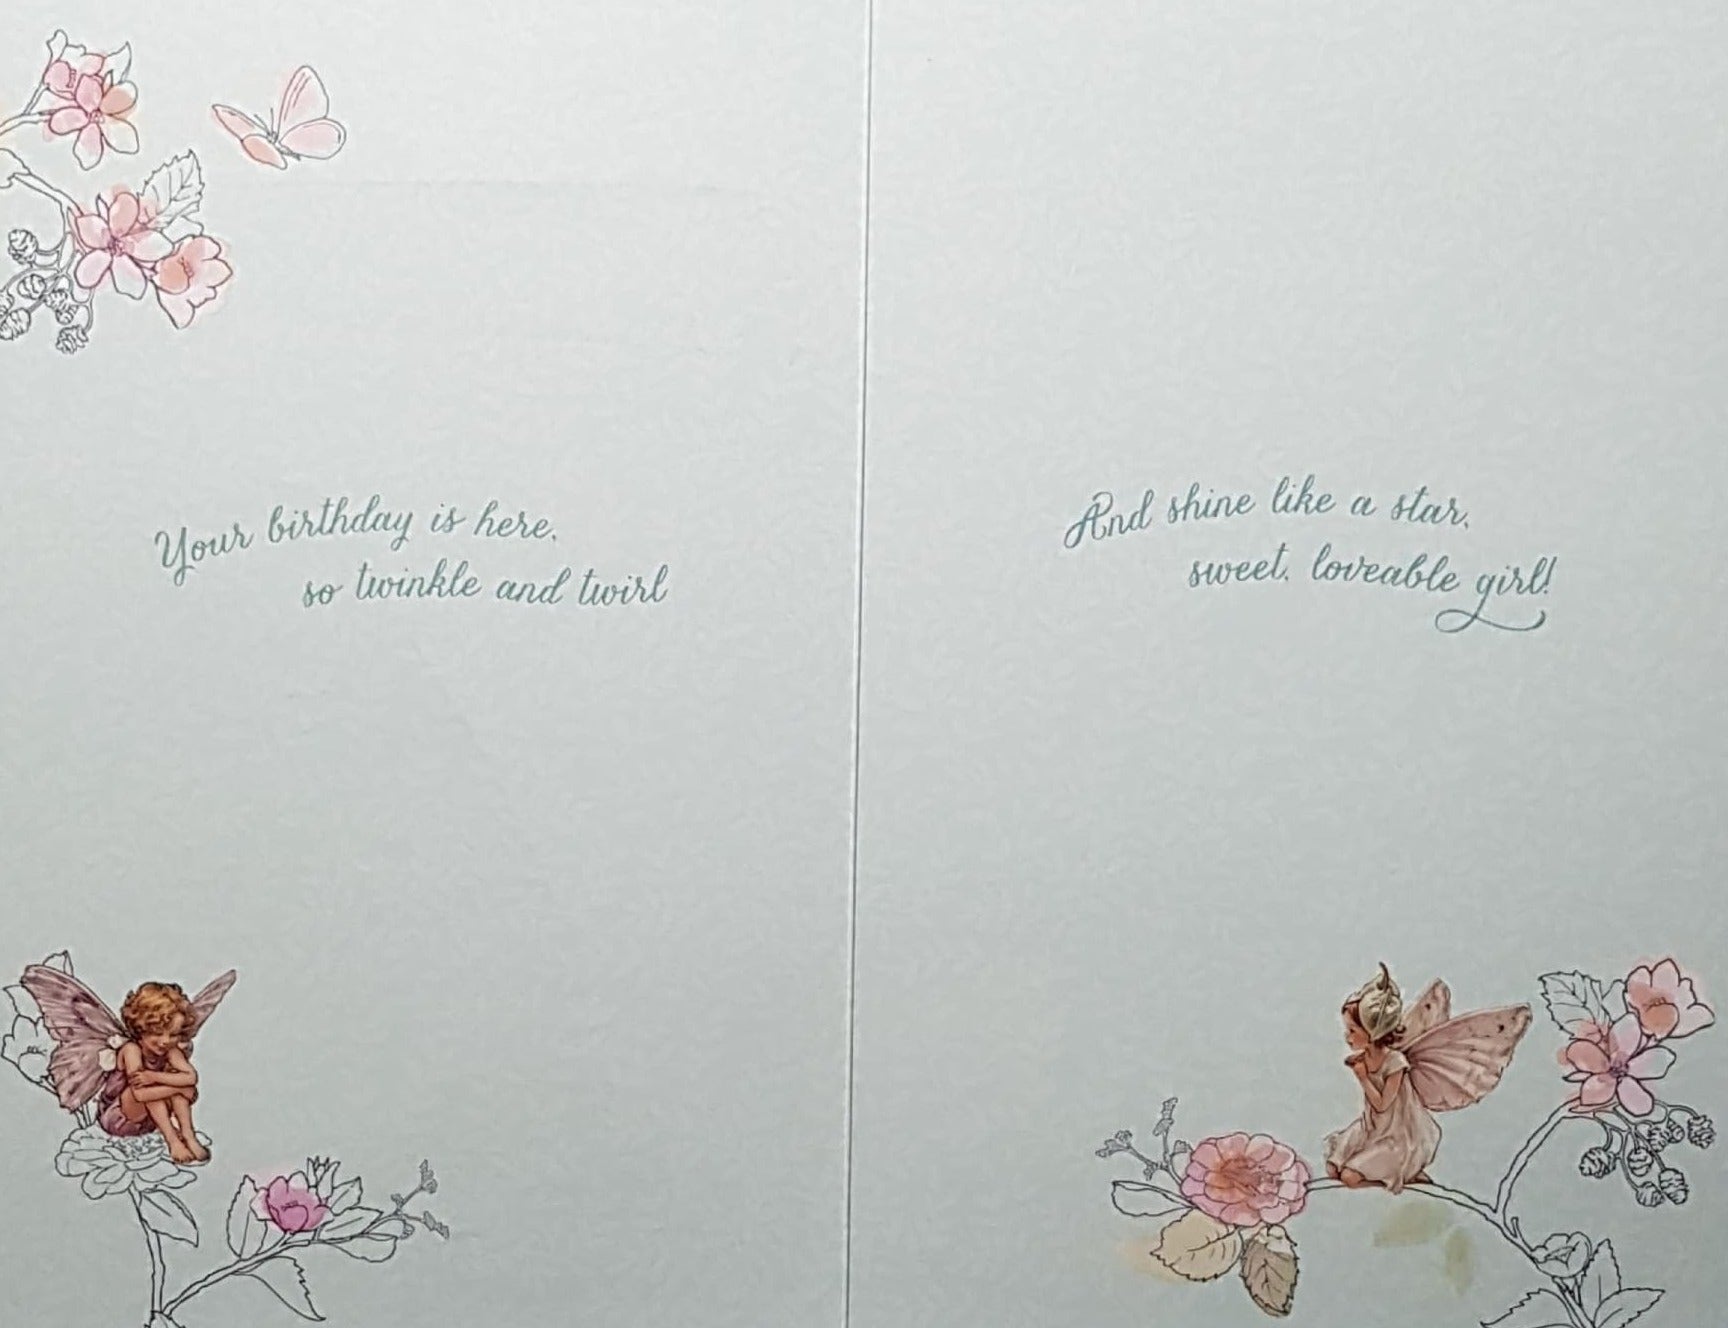 Your birthday is here,
so twinkle and twirl
And shine like a star,
sweet, loveable girl!